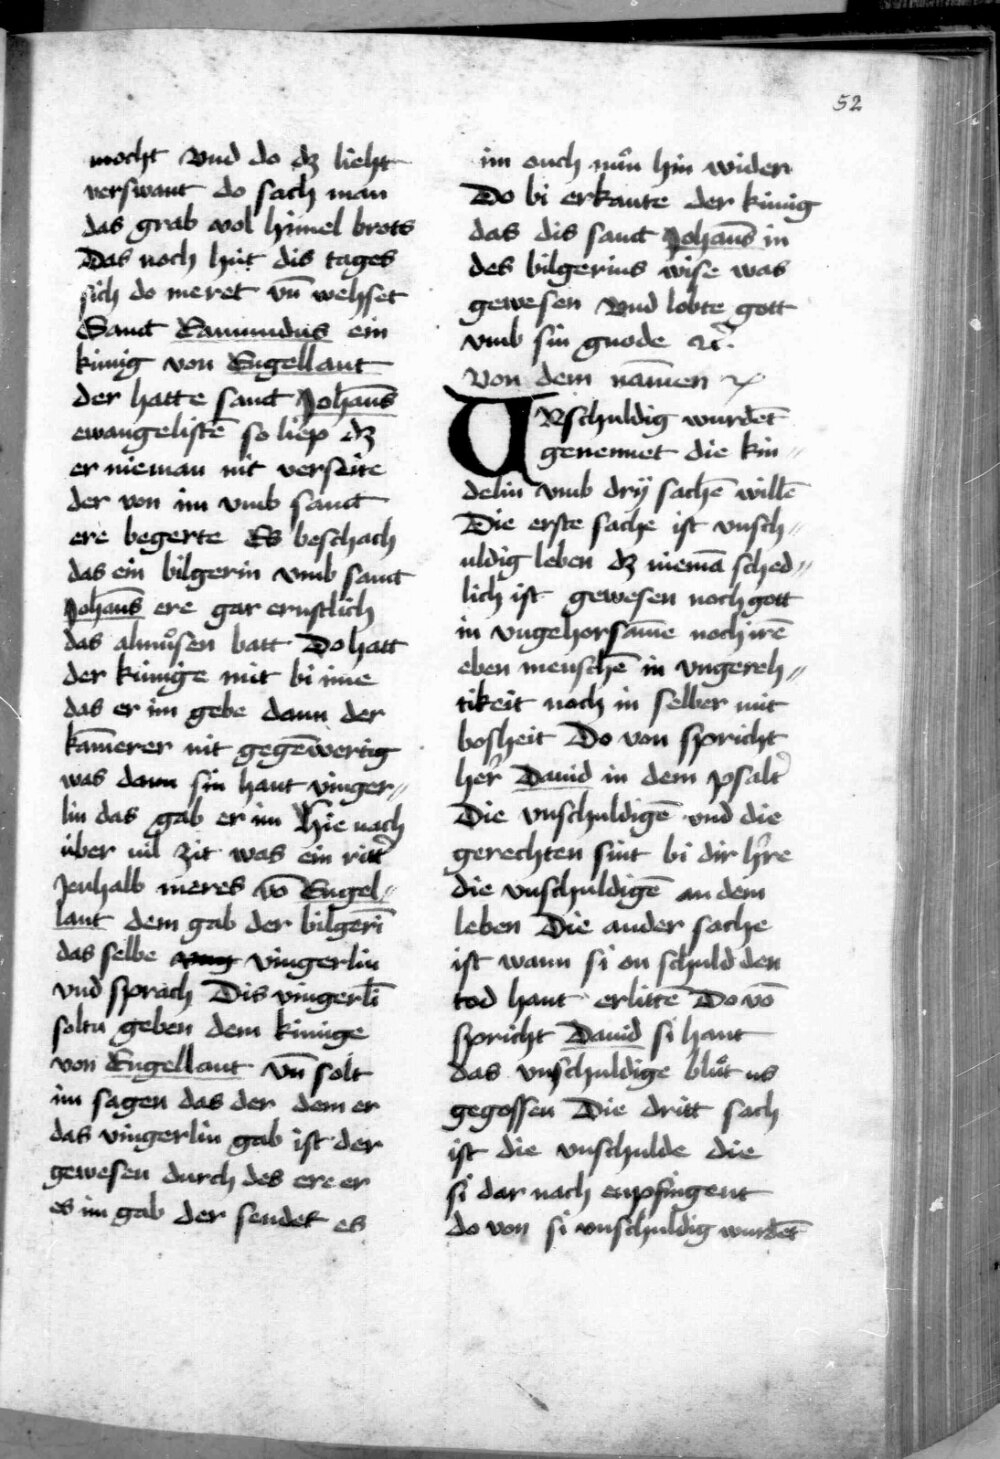 52
mocht Vnd do dz lieht
verswant do sach man
das grab vol himel brots
Das noch hüt dis tages
sich do meret vn̄ wehset
Sanct Eamundus ein
künig von Engellant
der hatte sanct Johan̄s
ewangelistē so liep dz
er nieman nit verseite
der von im vmb sanct
ere begerte Es beschach
das ein bilgerin vmb sanct
Johan̄s ere gar ernstlich
das almůsen batt Do hatt
der künige nüt bi ime
das er im gebe dann der
kām̄erer nit gegēwertig
was dann sin hant vinger⸗
lin das gab er im Hie nach
über vil zit was ein ritt̉
jenhalb meres vō Engel⸗
lant dem gab der bilgerī
das selbe vingerlin
vnd sprach Dis vingerlī
soltu geben dem künige
von Engellant vn̄ solt
im sagen das der dem er
das vingerlin gab ist der
gewesen durch des ere er
es im gab der sendet es
im ouch nůn hin wider
Do bi erkante der künig
das dis sanct Johan̄s in
des bilgerins wise was
gewesen Vnd lobte gott
vmb sin gnode ꝛc̉.
Von dem nam̄en
VNschuldig wurdēt
genennet die kin⸗
delin vmb drÿ sachē willē
Die erste sache ist vnsch⸗
uldig leben dz niemā sched⸗
lich ist gewesen noch gott
in vngehorsam̄e noch irē
eben menschē in vngereh⸗
tikeit noch in selber mit
bosheit Do von spricht
her̉ Dauid in dem psalt̉
Die vnschuldigē vnd die
gerechten sint bi dir h̉re
die vnschuldigē an dem
leben Die ander sache
ist wann si on schuld den
tod hant erlittē Do vō
spricht Dauid si hant
das vnschuldige blůt us
gegossen Die dritt sach
ist die vnschulde die
si dar nach enpfingent
do von si vnschuldig wurdēt